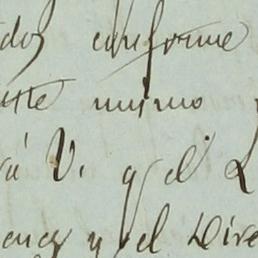 dos conforme
este mismo
rá V. y el L
encia y el Dire